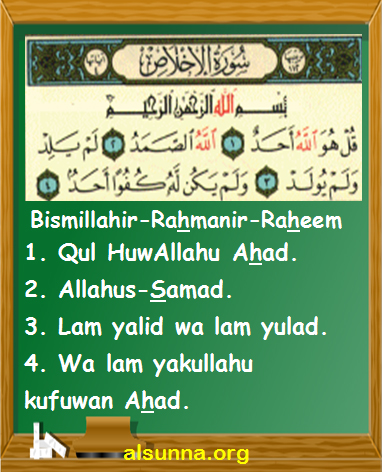 سُورَةُ الإِخْلَاصِ
بِسْمِ اللهِ الرَّحْمَنِ الرَّحِيمِ
قُلْ هُوَ اللهُ أَحَدٌ ١ اللهُ الصَّمَدُ ٢ لَمْ يَلِدْ
وَلَمْ يُولَدْ ٣ وَلَمْ يَكُن لَّهُ كُفُوًا أَحَدٌ ٤
Bismillahir-Rahmanir-Raheem
1. Qul HuwAllahu Ahad.
2. Allahus-Samad.
3. Lam yalid wa lam yulad.
4. Wa lam yakullahu
kufuwan Ahad.
alsunna.org